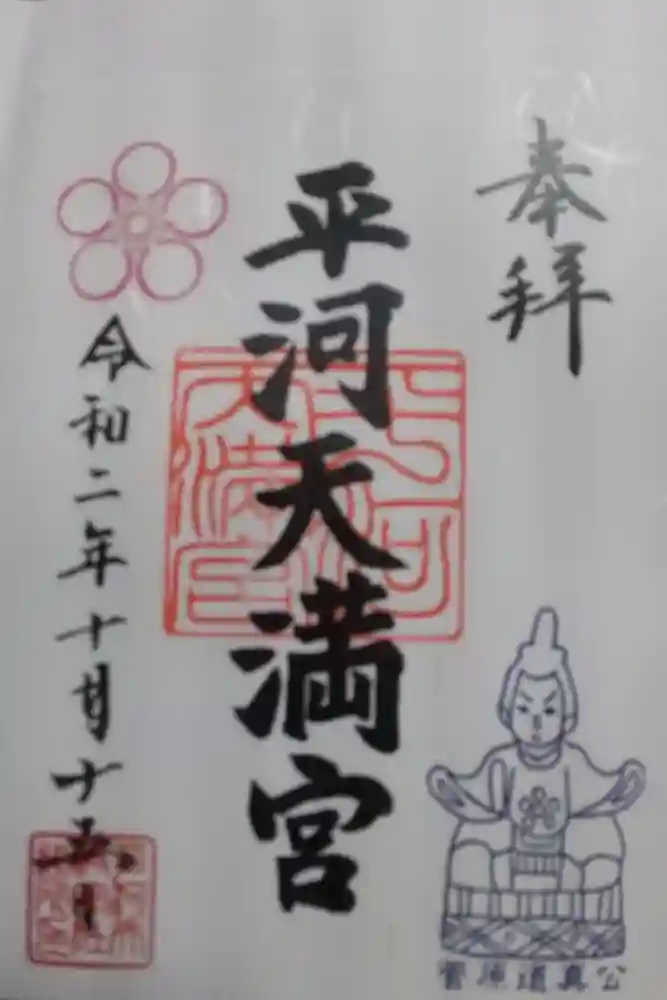 奉拝
平河天満宮
令和二年十月十五日
菅原道真公